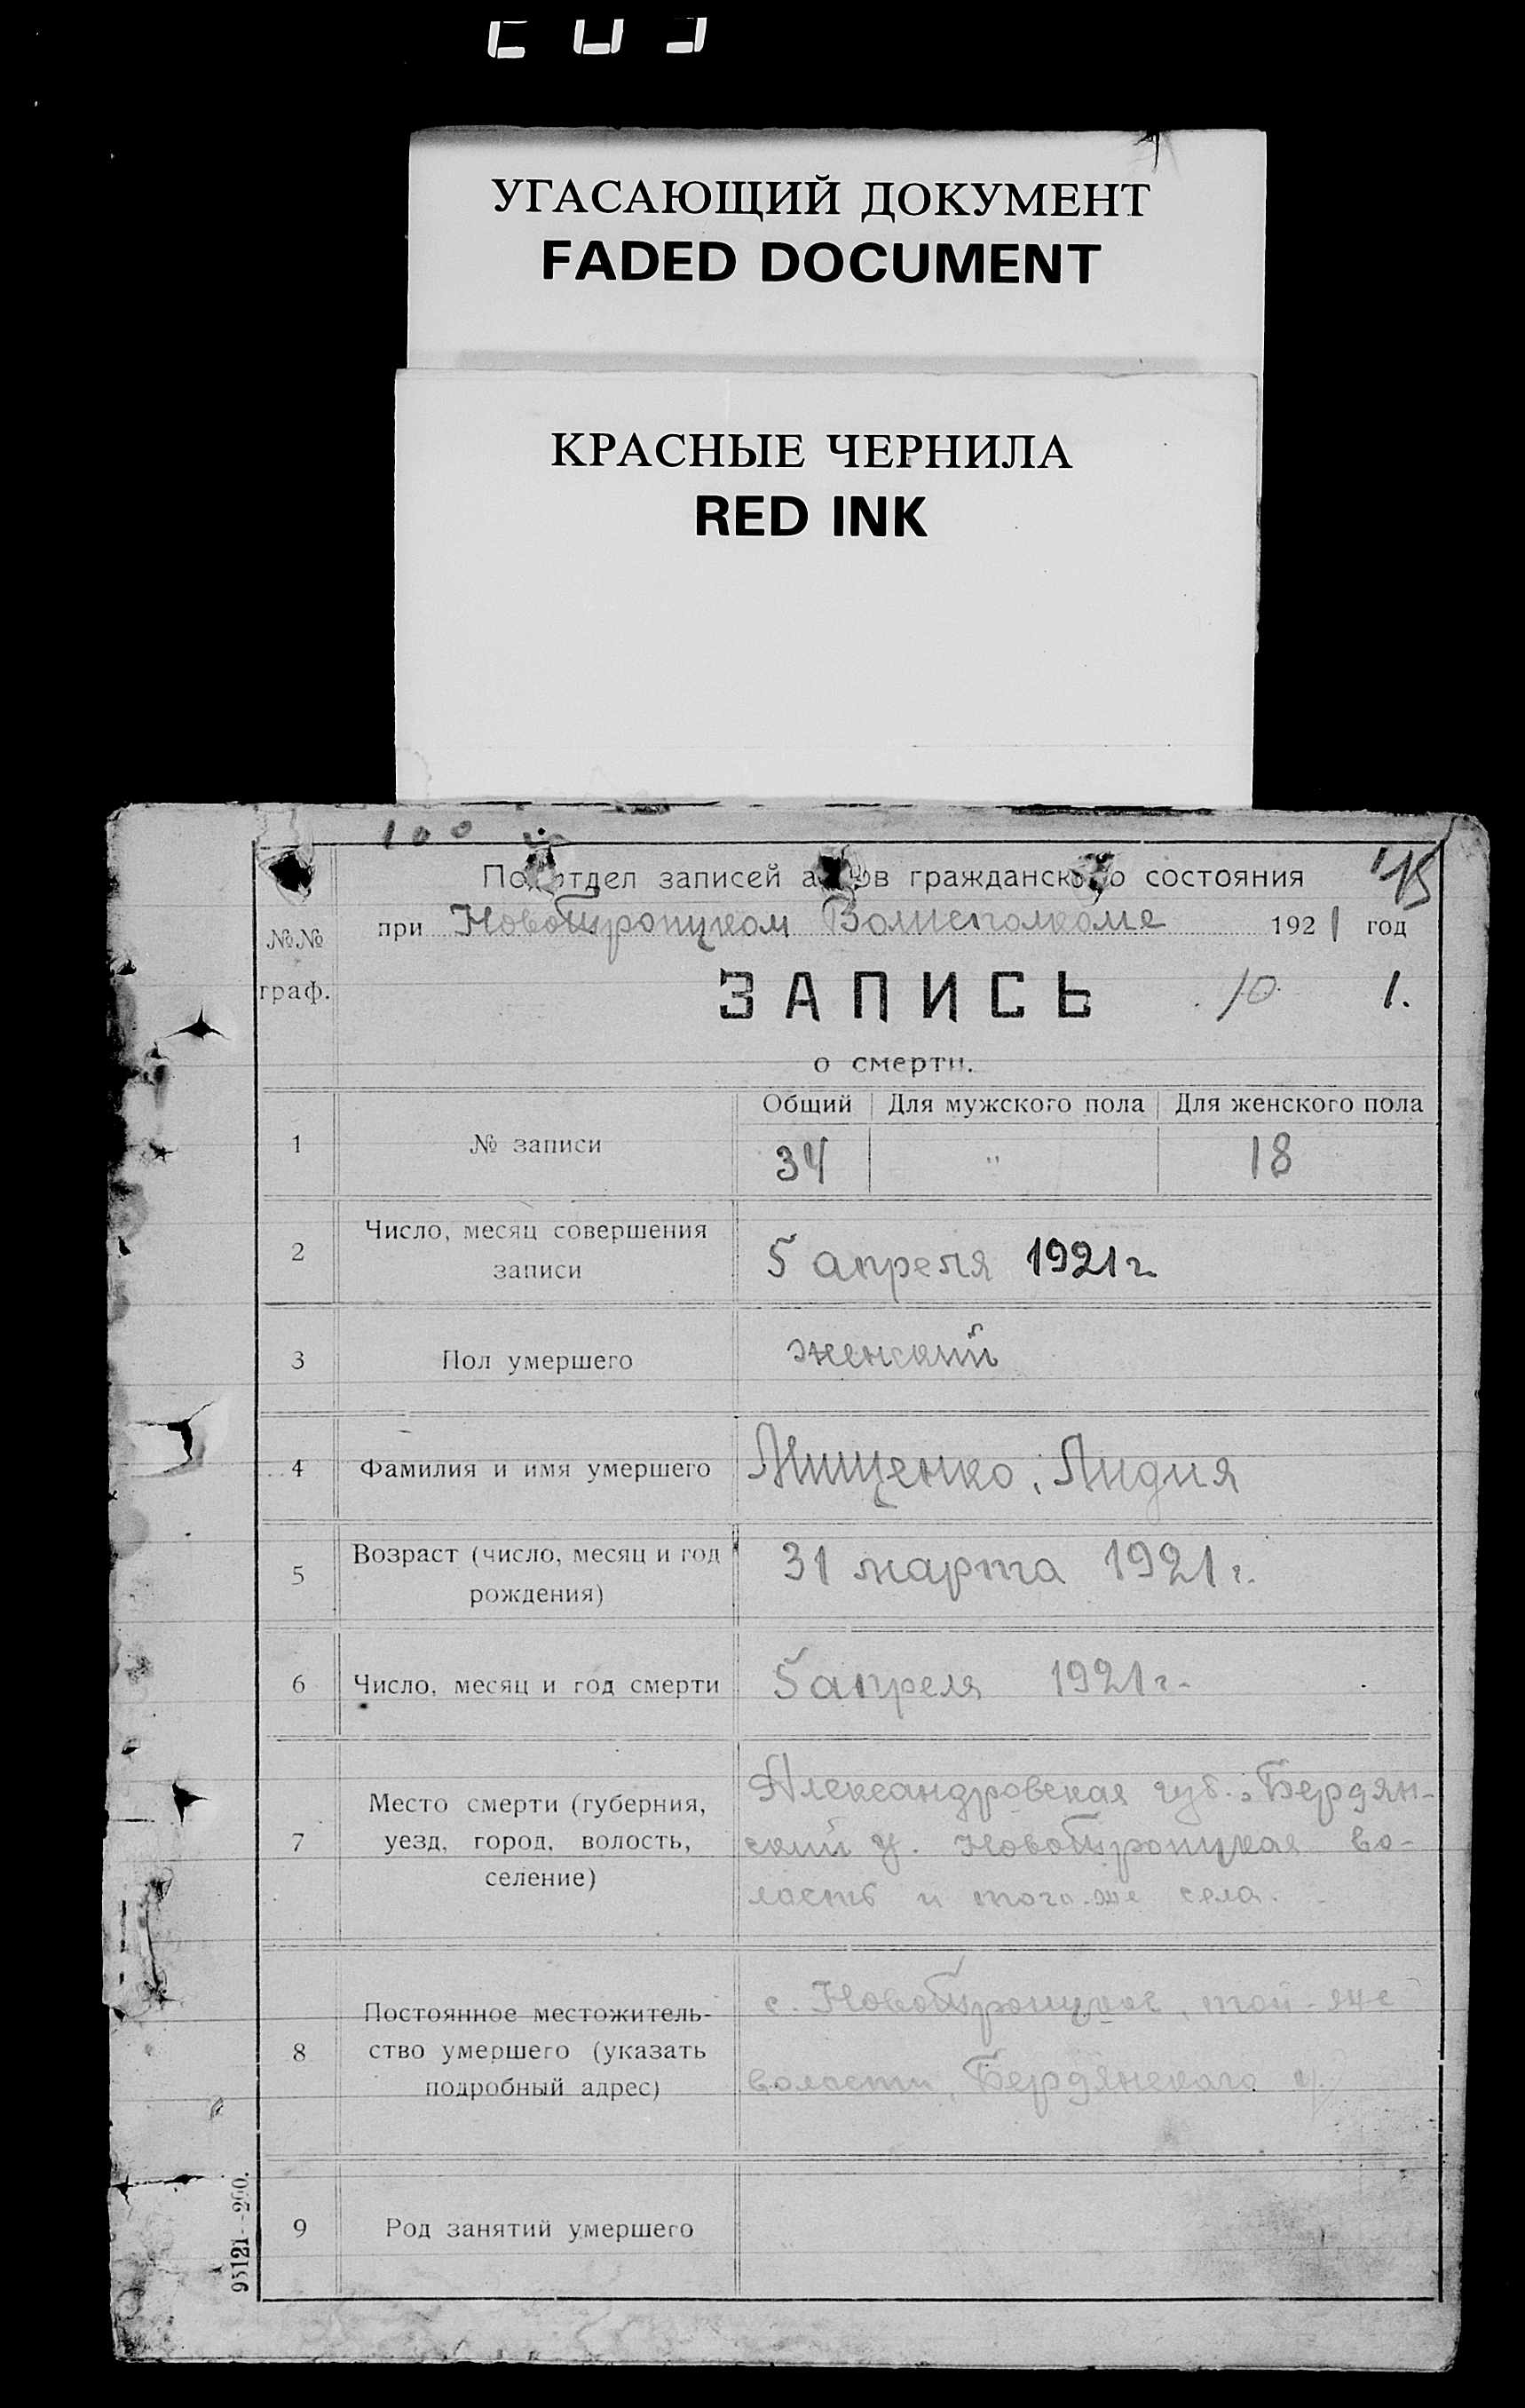 УГАСАЮЩИЙ ДОКУМЕНТ
FADED DOCUMENT
КРАСНЫЕ ЧЕРНИЛА
RED INK
100
Подотдел записей актов гражданского состояния
при Новотроицком Волисполкоме 1921 год
№№
граф.
ЗАПИСЬ 10 1.
о смерти.
Общий Для мужского пола Для женского пола
1 № записи 34 " 18
2 Число, месяц совершения
записи
5 апреля 1921 г.
3 Пол умершего женский
4 Фамилия и имя умершего Мищенко, Лидия
5 Возраст (число, месяц и год
рождения)
31 марта 1921 г.
6 Число, месяц и год смерти 5 апреля 1921 г.
7 Место смерти (губерния,
уезд, город, волость,
селение)
Александровская губ., Бердян-
ский у. Новотроицкая во-
лость и того-же села.
8 Постоянное местожитель-
ство умершего (указать
подробный адрес)
с. Новотроицкое, той-же
волости, Бердянскаго у.
9 Род занятий умершего
95121--200.